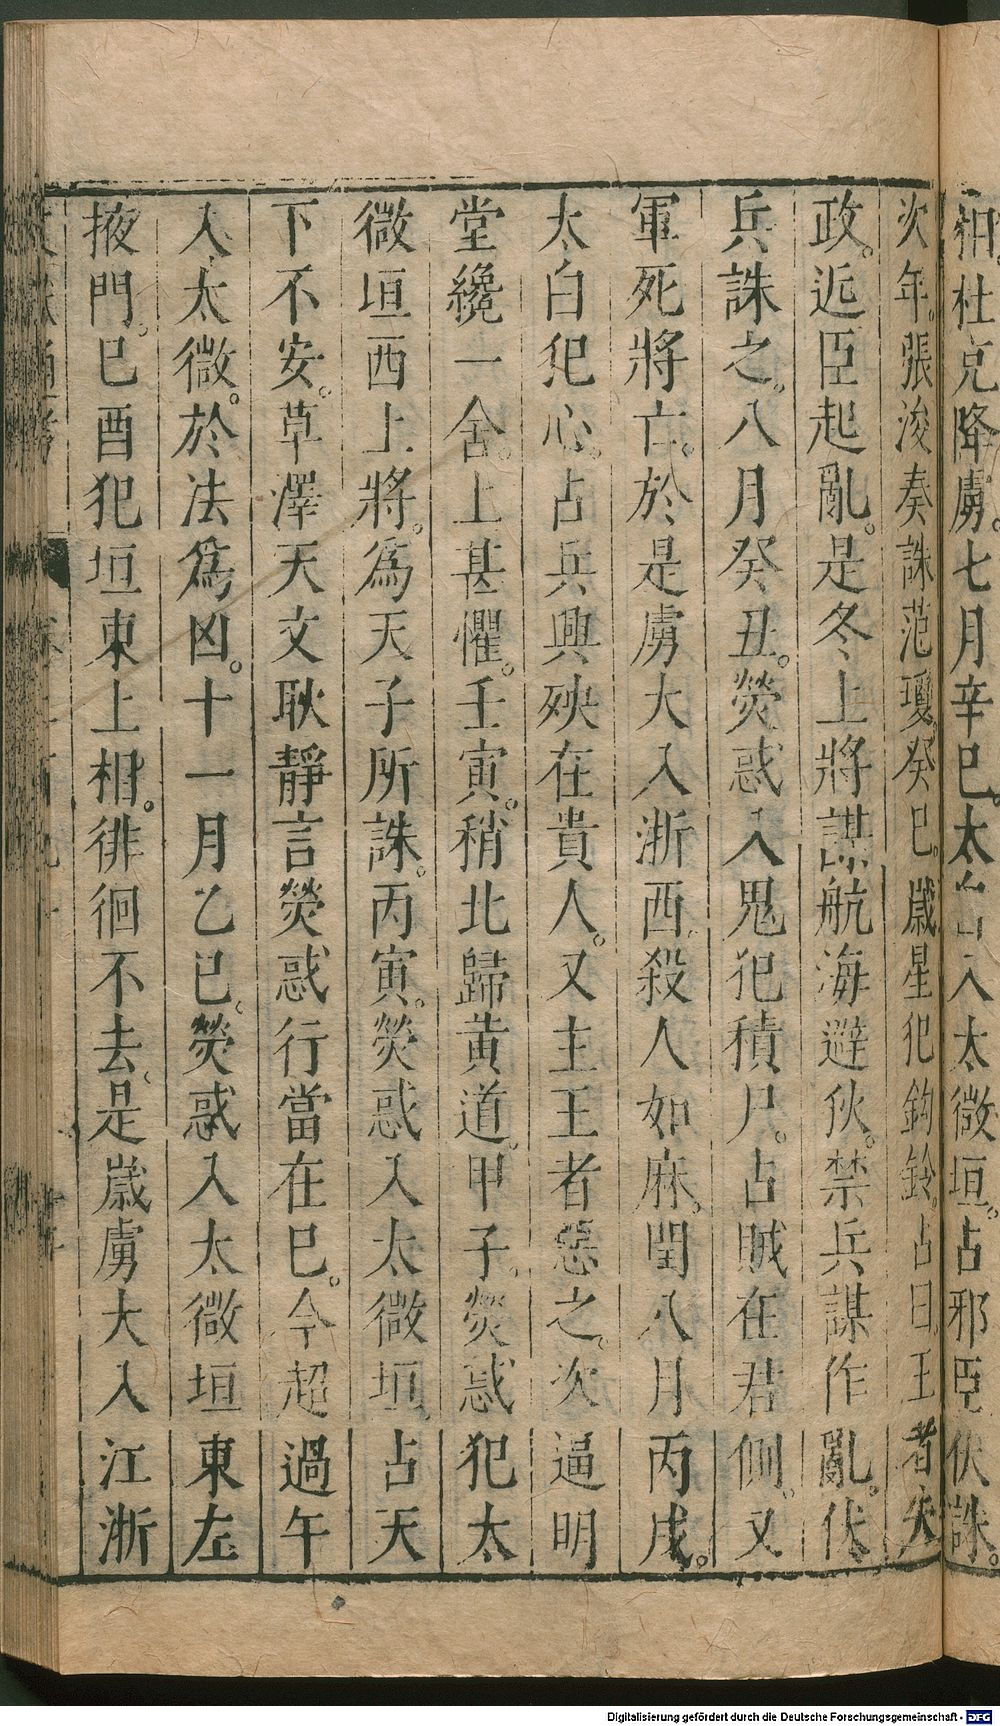 相。杜克降虜。七月辛巳。太白入太微垣。占邪臣伏誅。
次年。張浚奏誅范瓊。癸巳。歲星犯鈎鈐。占曰。王者失
政。近臣起亂。是冬上將謀航海避狄。禁兵謀作亂。伏
兵誅之。八月癸丑。熒惑入鬼犯積尸。占賊在君側。又
軍死將亡。於是虜大入浙西。殺人如麻。閏八月丙戌。
太白犯心。占兵興殃在貴人。又主王者惡之。次逼明
堂纔一舍。上甚懼。壬寅。稍北歸黃道。甲子。熒惑犯太
微垣西上將。爲天子所誅。丙寅。熒惑入太微垣。占天
下不安。草澤天文耿靜言熒惑行當在巳。今超過午
入太微。於法爲凶。十一月乙巳。熒惑入太微垣東左
掖門。已酉犯垣東上相。徘徊不去。是歲虜大入江浙
Digitalisierung gefördert durch die Deutsche Forschungsgemeinschaft - DFG